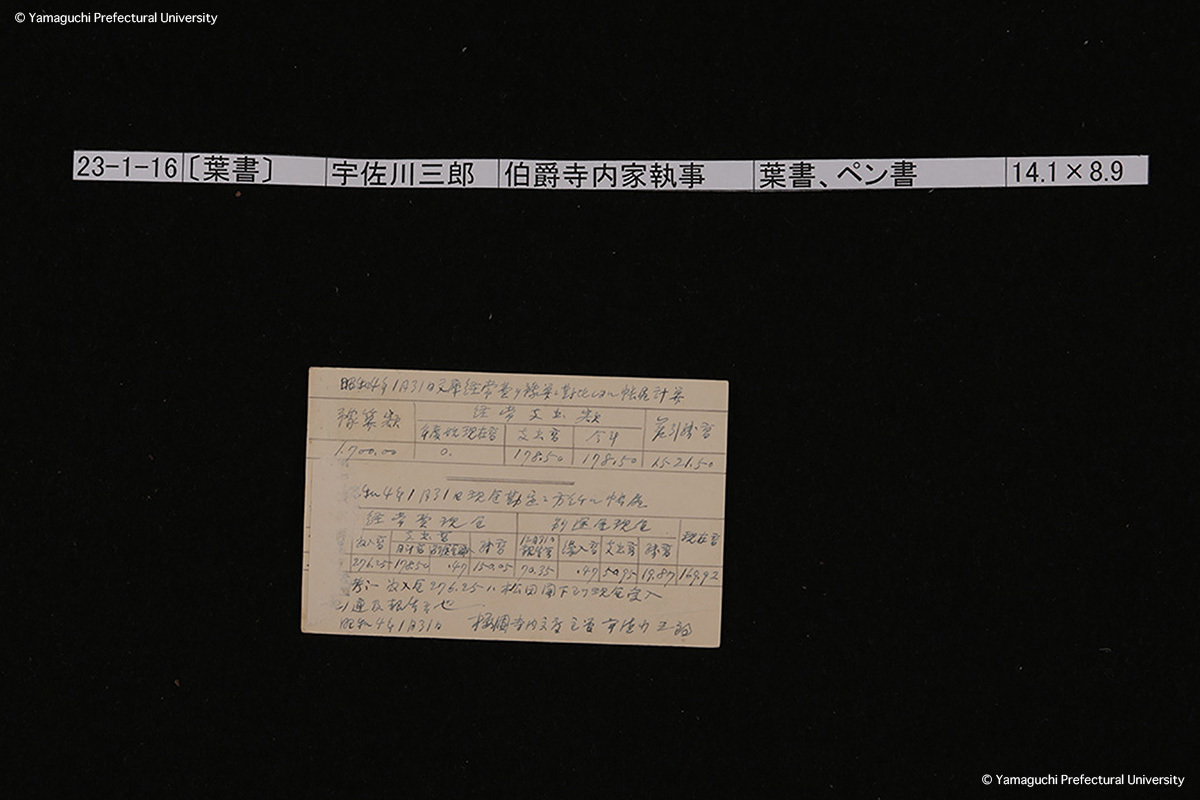 © Yamaguchi Prefectural University
23-1-16 〔葉書〕 宇佐川三郎 伯爵寺内家執事 葉書、ペン書 14.1×8.9
昭和4年1月31日文庫経常費ノ予算ニ対比シタル帳尻計算
予算額 経常支出額 差引残高
年度始現在高 支出高 合計
1.700.00 0. 178.50 178.50 15 21.50
昭和4年1月31日現金勘定ニ於ケル帳尻
経常費現金 別途金現金 現在高
収入高 支出高 残高 繰入高 支出高 残高
276.25 178.50 .47 150.05 70.35 .47 50.95 19.87 169.92
収入金276.25ハ松田閣下ヨリ現金受入
昭和4年1月31日 桜圃寺内文庫主管 宇佐川三郎
© Yamaguchi Prefectural University